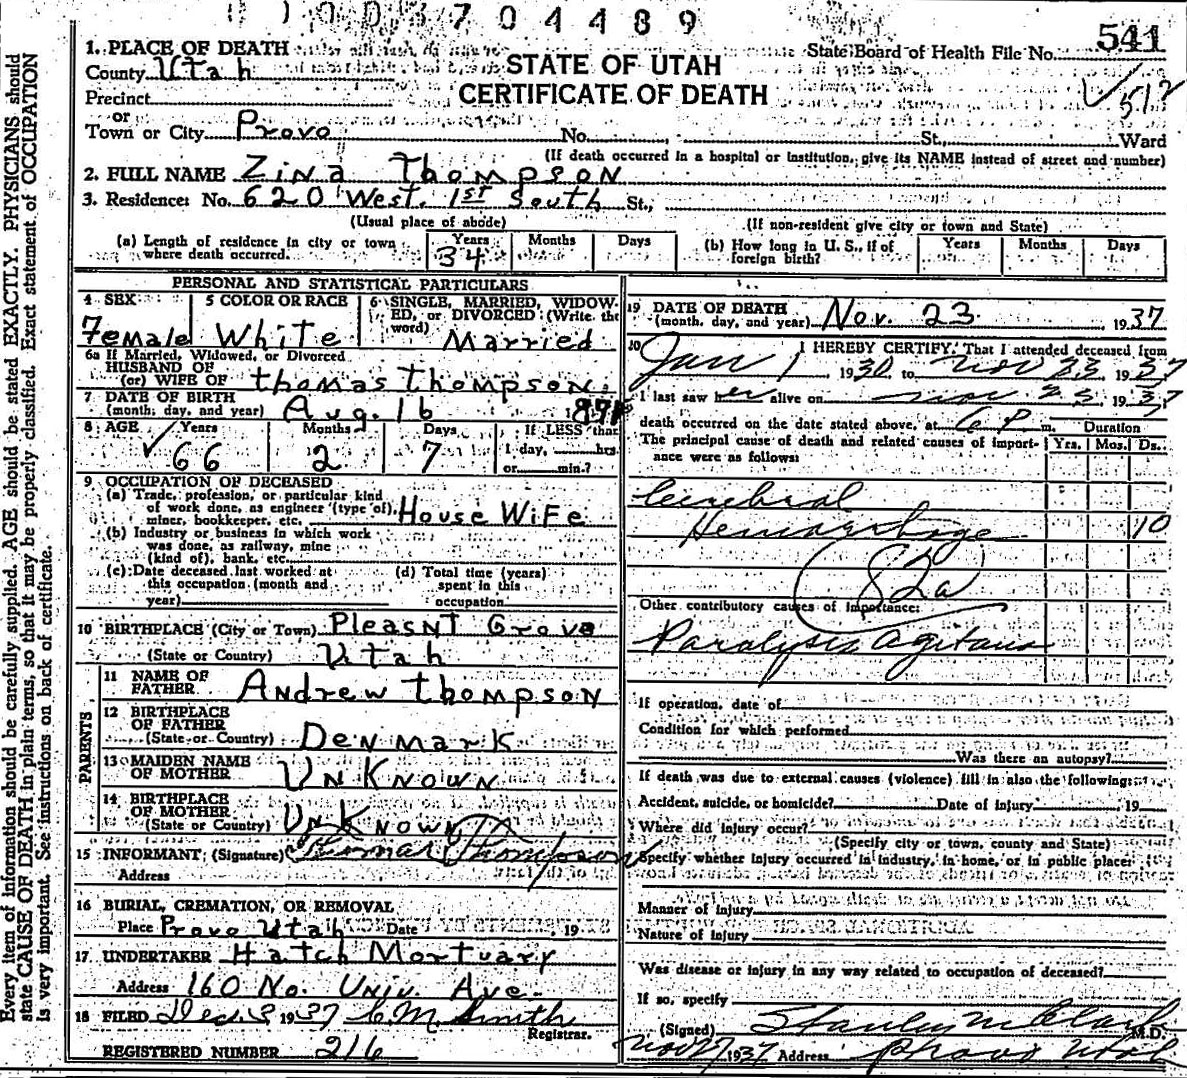 1003704489
1. PLACE OF DEATH
State Board of Health File No. 541
County Utah
STATE OF UTAH
Precinct
CERTIFICATE OF DEATH
512
or
Town or City Provo No. St., Ward
(If death occurred in a hospital or institution, give its NAME instead of street and number)
2. FULL NAME Zina Thompson
3. Residence: No. 620 West. 1st South St.,
(Usual place of abode) (If non-resident give city or town and State)
(a) Length of residence in city or town where death occurred. Years 34 Months Days
(b) How long in U. S., if of foreign birth? Years Months Days
PERSONAL AND STATISTICAL PARTICULARS
4 SEX Female
5 COLOR OR RACE White
6 SINGLE, MARRIED, WIDOWED, or DIVORCED (Write the word) Married
6a If Married, Widowed, or Divorced
HUSBAND OF
(or) WIFE OF thomas thompson.
7 DATE OF BIRTH
(month, day, and year) Aug. 16 1871
8 AGE Years 66 Months 2 Days 7 If LESS than 1 day, hrs. or min.?
9 OCCUPATION OF DECEASED
(a) Trade, profession, or particular kind
of work done, as engineer (type of),
miner, bookkeeper, etc. House Wife
(b) Industry or business in which work
was done, as railway, mine
(kind of), bank, etc.
(c) Date deceased last worked at
this occupation (month and
year)
(d) Total time (years)
spent in this
occupation
10 BIRTHPLACE (City or Town) Pleasnt Grove
(State or Country) Utah
PARENTS
11 NAME OF
FATHER Andrew thompson
12 BIRTHPLACE
OF FATHER
(State or Country) Denmark
13 MAIDEN NAME
OF MOTHER UnKnown
14 BIRTHPLACE
OF MOTHER
(State or Country) UnKnown
15 INFORMANT: (Signature) Thomas Thompson
Address
16 BURIAL, CREMATION, OR REMOVAL
Place Provo Utah Date , 19
17 UNDERTAKER Hatch Mortuary
Address 160 No. Univ. Ave.
18 FILED Dec. 3 1937 C.M. Smith
Registrar.
REGISTERED NUMBER 216
19 DATE OF DEATH
(month, day, and year) Nov. 23 , 1937
20 I HEREBY CERTIFY, That I attended deceased from
Jan 1 1930, to Nov 23, 1937
I last saw her alive on Nov 23, 1937
death occurred on the date stated above, at 6 P m. Duration
The principal cause of death and related causes of importance were as follows: Yrs. Mos. Ds.
Cerebral
Hemorrhage 10
82a
Other contributory causes of importance:
Paralysis agitans
If operation, date of
Condition for which performed
Was there an autopsy?
If death was due to external causes (violence) fill in also the following:
Accident, suicide, or homicide? Date of injury , 19
Where did injury occur?
(Specify city or town, county and State)
Specify whether injury occurred in industry, in home, or in public place:
Manner of injury
Nature of injury
Was disease or injury in any way related to occupation of deceased?
If so, specify
(Signed) Stanley M Clark M.D.
Nov 27 1937 Address Provo Utah
Every item of information should be carefully supplied. AGE should be stated EXACTLY. PHYSICIANS should
state CAUSE OF DEATH in plain terms, so that it may be properly classified. Exact statement of OCCUPATION
is very important. See instructions on back of certificate.